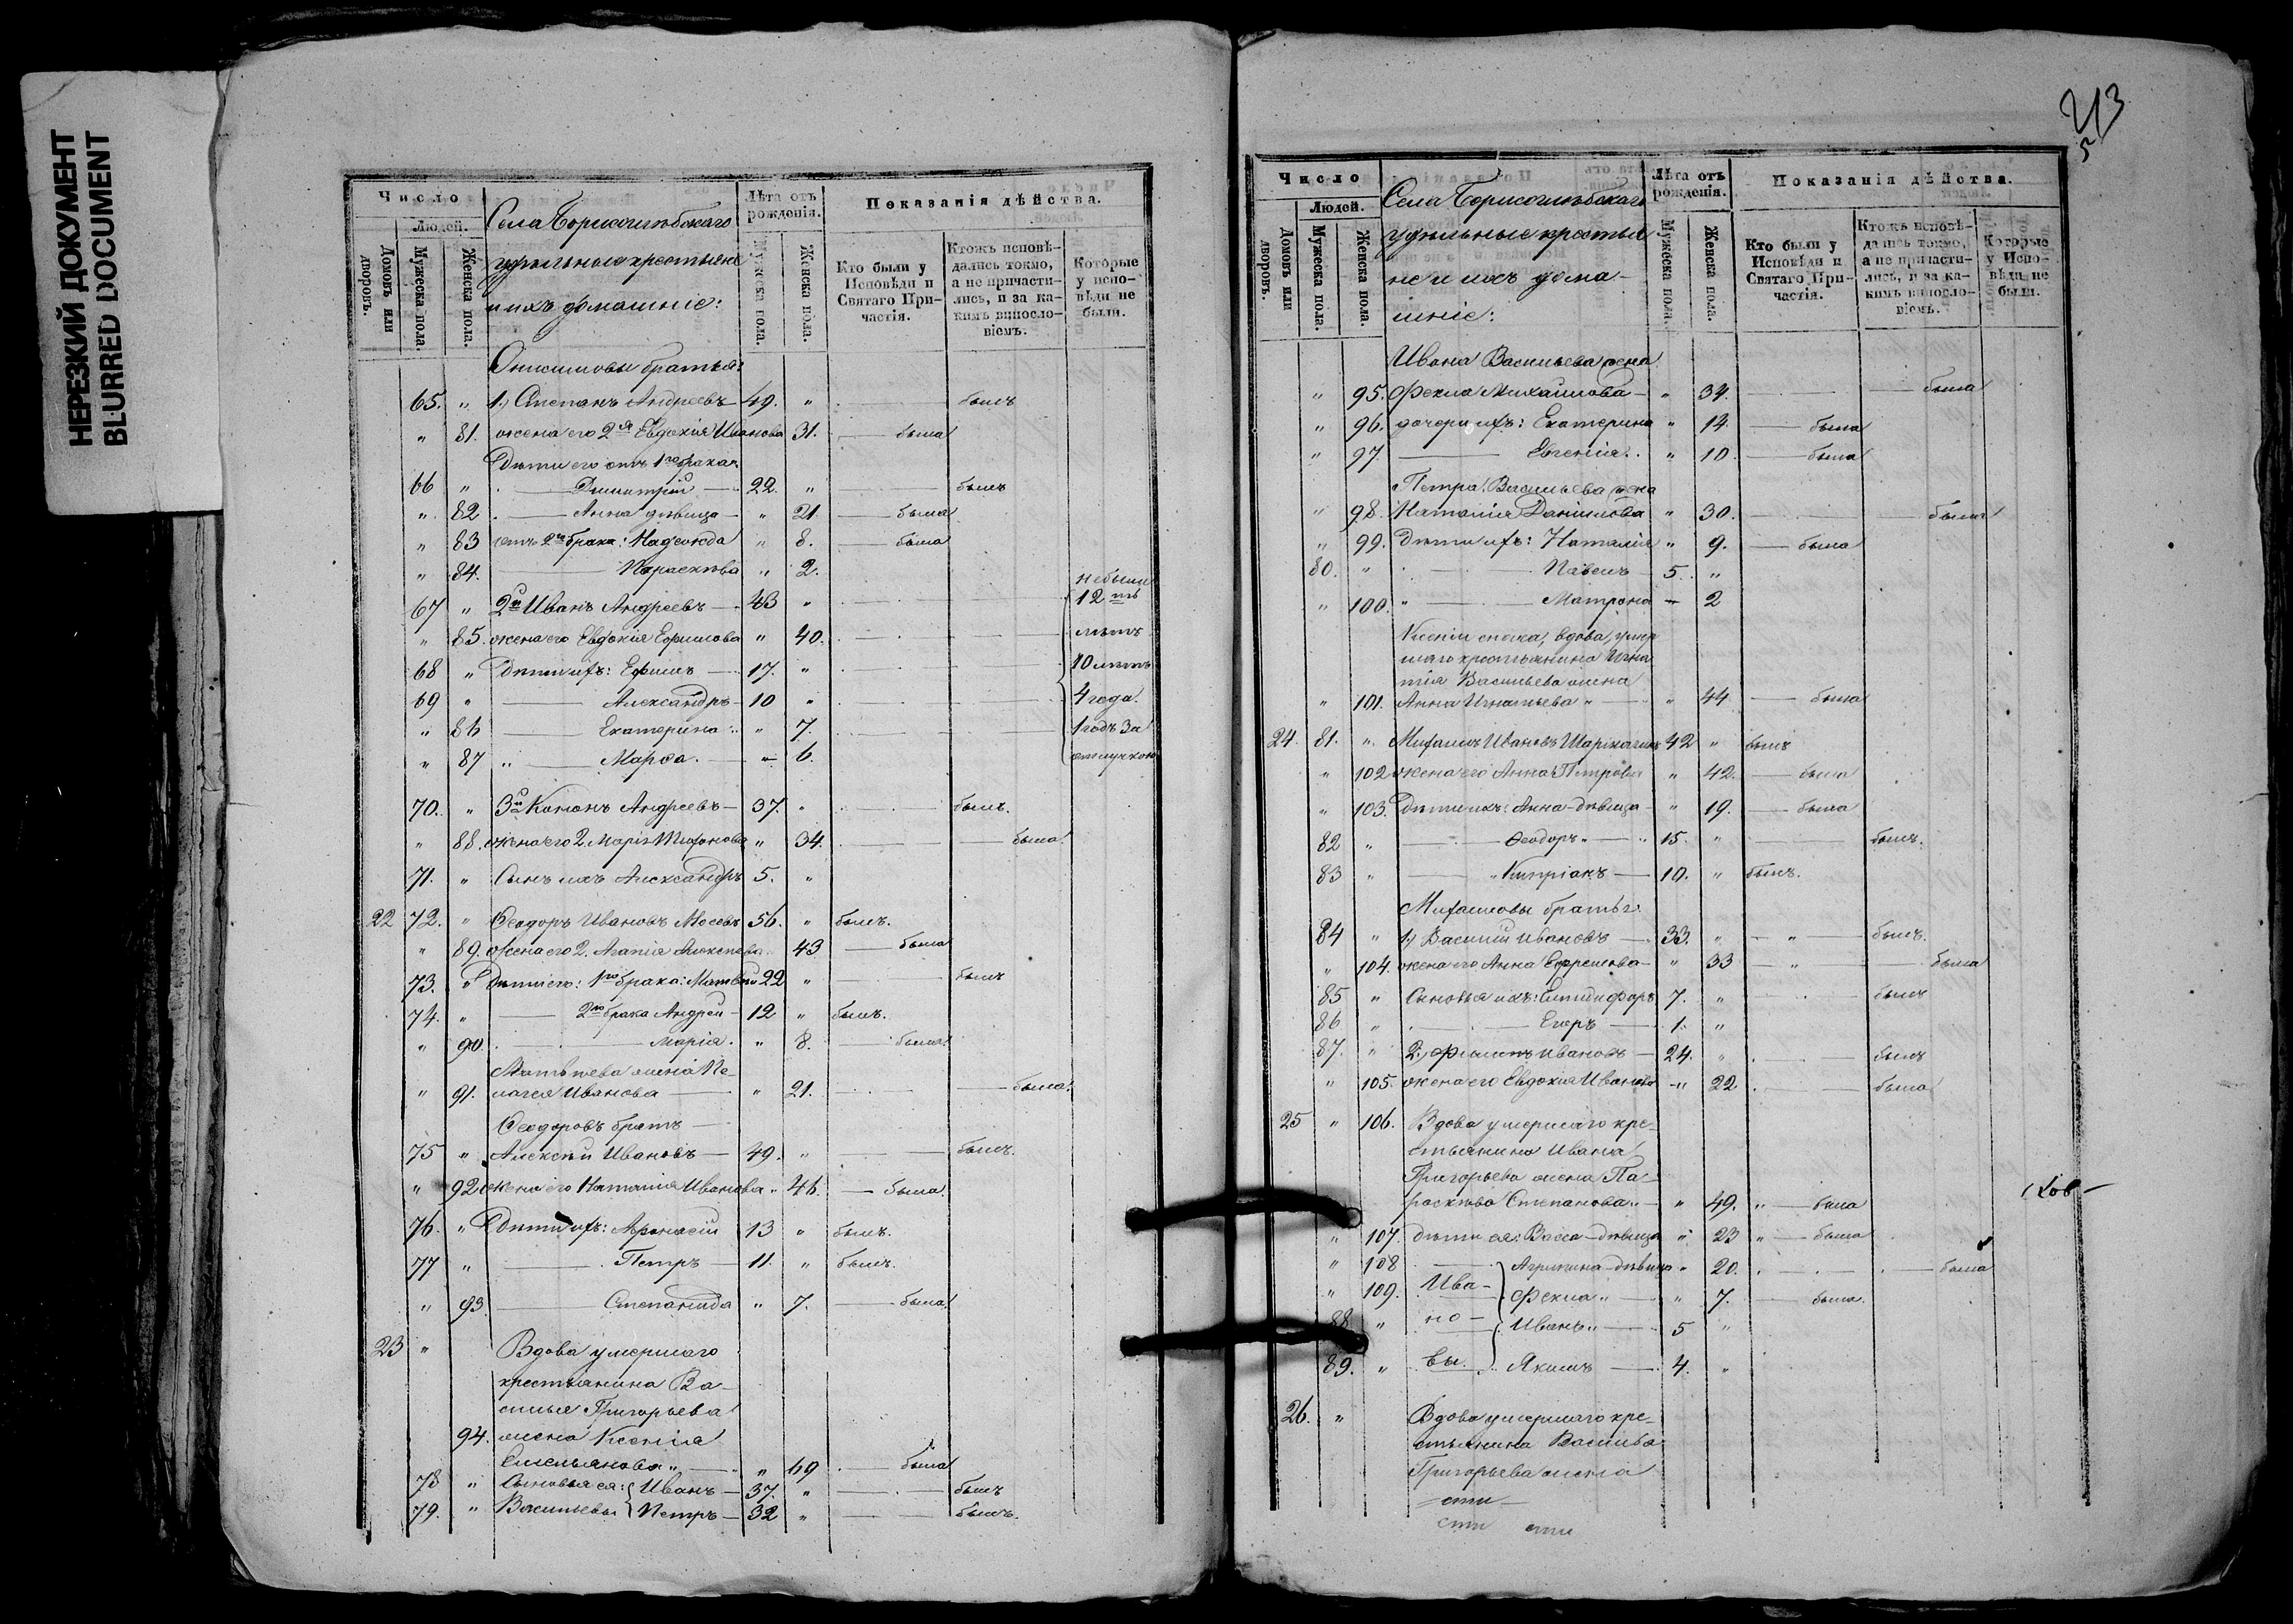 НЕРЕЗКИЙ ДОКУМЕНТ
BLURRED DOCUMENT
Число
Людей.
Домовъ или дворовъ.
Мужеска пола.
Женска пола.
Села Борисоглѣбскаго
удѣльные крестьяне
и ихъ домашніе:
Лѣта отъ рожденія.
Мужеска пола.
Женска пола.
Показанія дѣйства.
Кто были у Исповѣди и Святаго Причастія.
Ктожъ исповѣдались токмо, а не причастились, и за какимъ винословіемъ.
Которые у исповѣди не были.
Онисимовы братья:
65. „ 1.) Степанъ Андреевъ — 49. „ — былъ
„ 81. жена его 2я Евдокія Иванова 31. — была
Дѣти его отъ 1го брака:
66 „ — Димитрій — 22. „ — былъ
„ 82 — Анна дѣвица — „ 21. — была
„ 83 отъ 2го брака: Надежда „ 8. — была
„ 84. — Параскева „ 2.
67 „ 2й Иванъ Андреевъ — 43 „ — не были 12ть
„ 85. жена его Евдокія Ефимова „ 40. — лѣтъ
68 „ Дѣти ихъ: Ефимъ — 17. „ — 10 лѣтъ
69 „ — Александръ — 10 „ — 4 года.
„ 86 — Екатерина „ 7. — 1 годъ За
„ 87 „ — Марѳа. — „ 6. отлучкою
70. „ 3й Кононъ Андреевъ — 37. „ — былъ.
„ 88. жена его 2. Марія Тихонова „ 34. — была
71. „ Сынъ ихъ Александръ 5. „
22 72. „ Ѳеодоръ Ивановъ 56. „ былъ.
„ 89. Жена его 2. Агапія Алексѣева 43 — была
73. „ Дѣти его: 1го брака: Матвѣй 22 „ — былъ
74. „ — 2го брака Андрей — 12 „ былъ.
„ 90. — Марія. „ 8. — была
Матвѣева жена Пе-
„ 91. лагея Иванова — „ 21. — была.
Ѳеодоровъ братъ —
75 „ Алексѣй Ивановъ — 49. „ — былъ.
„ 92 жена его Наталія Иванова „ 46. — была.
76. „ Дѣти ихъ: Аѳонасій 13 „ былъ.
77 „ — Петръ — 11. „ былъ.
„ 93. — Степанида „ 7. — была.
23 „ Вдова умершаго
крестьянина Ва-
силья Григорьева
94. жена Ксенія
Емельянова „ — „ 69 — была
78 „ Сыновья ея: Иванъ — 37. „ — былъ
79. „ Васильевы Петръ — 32 „ — былъ.
213
5
Число
Людей.
Домовъ или дворовъ.
Мужеска пола.
Женска пола.
Села Борисоглѣбскаго
удѣльные крестья-
не и ихъ дома-
шніе:
Лѣта отъ рожденія.
Мужеска пола.
Женска пола.
Показанія дѣйства.
Кто были у Исповѣди и Святаго Причастія.
Ктожъ исповѣдались токмо, а не причастились, и за какимъ винословіемъ.
Которые у Исповѣди не были.
Ивана Васильева жена
„ 95. Фекла Михайлова — „ 34. — была
„ 96. дочери ихъ: Екатерина „ 14. — была
„ 97 — Евгенія. „ 10. — была
Петра Васильева жена
„ 98. Наталія Даніилова „ 30. — была
„ 99. Дѣти ихъ: Наталія „ 9. — была
80. „ — Павелъ — 5. „
„ 100. „ — Матрона — 2
Ксеніи сноха, вдова, умер
шаго крестьянина Игна
тія Васильева жена
„ 101. Анна Игнатьева „ — „ 44 — была
24. 81. „ Михаилъ Ивановъ 42 „ былъ
„ 102 жена его Анна Петрова „ 42. — была
„ 103. Дѣти ихъ: Анна — дѣвица „ 19. — была
82 „ — Ѳеодоръ „ — 15. „ — былъ.
83 „ — Кипріанъ — 10. „ былъ.
Михаиловы братья
84 „ 1) Василій Ивановъ — 33. „ — „ — былъ.
„ 104. жена его Анна Ефремова — „ 33 — „ — была
85 „ Сыновья ихъ: 7. „ — былъ
86 „ — Егоръ — 1. „
87. „ 2.) Филипъ Ивановъ — 24. „ — былъ
„ 105. жена его Евдокія Иванова „ 22. — была
25 „ 106. Вдова умершаго кре-
стьянина Ивана
Григорьева жена Па-
раскева Степанова „ — „ 49. „ — была
„ 107 дѣти ея: Васса — дѣвица „ 23 „ — была
„ 108 — Агрипина — дѣвица „ 20. — была
„ 109. Ива- Фекла „ — „ 7. — была.
88 „ но- Иванъ „ — 5 „
89. „ вы. Якимъ — 4. „
26. „ Вдова умершаго кре-
стьянина Василья
Григорьева жена